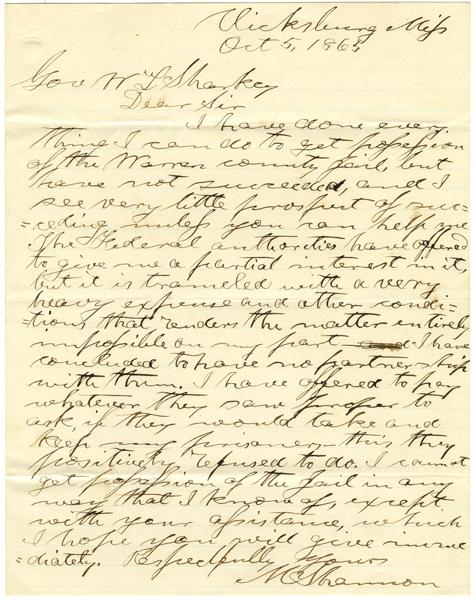 Vicksburg Miss
Oct 5, 1865,
Gov Wm L Sharkey
Dear Sir
I have done every
thing I can do to get possession
of the Warren county jail, but
have not succeeded, and I
see very little prospect of suc-
=ceding unless you can help me
The Federal authorities have offered
to give me a partial interest in it,
but it is trameled with a very
heavy expense and other condi-
=tions that renders the matter entirely
impossible on my part I have
concluded to have no partnership
with them. I have offered to pay
whatever they saw proper to
ask, if they would take and
keep my prisoners - this they
positively refused to do. I cannot
get possession of the jail in any
way that I know of, except
with your assistance, which
I hope you will give imme
diately. Respectfully Yours
M Shannon